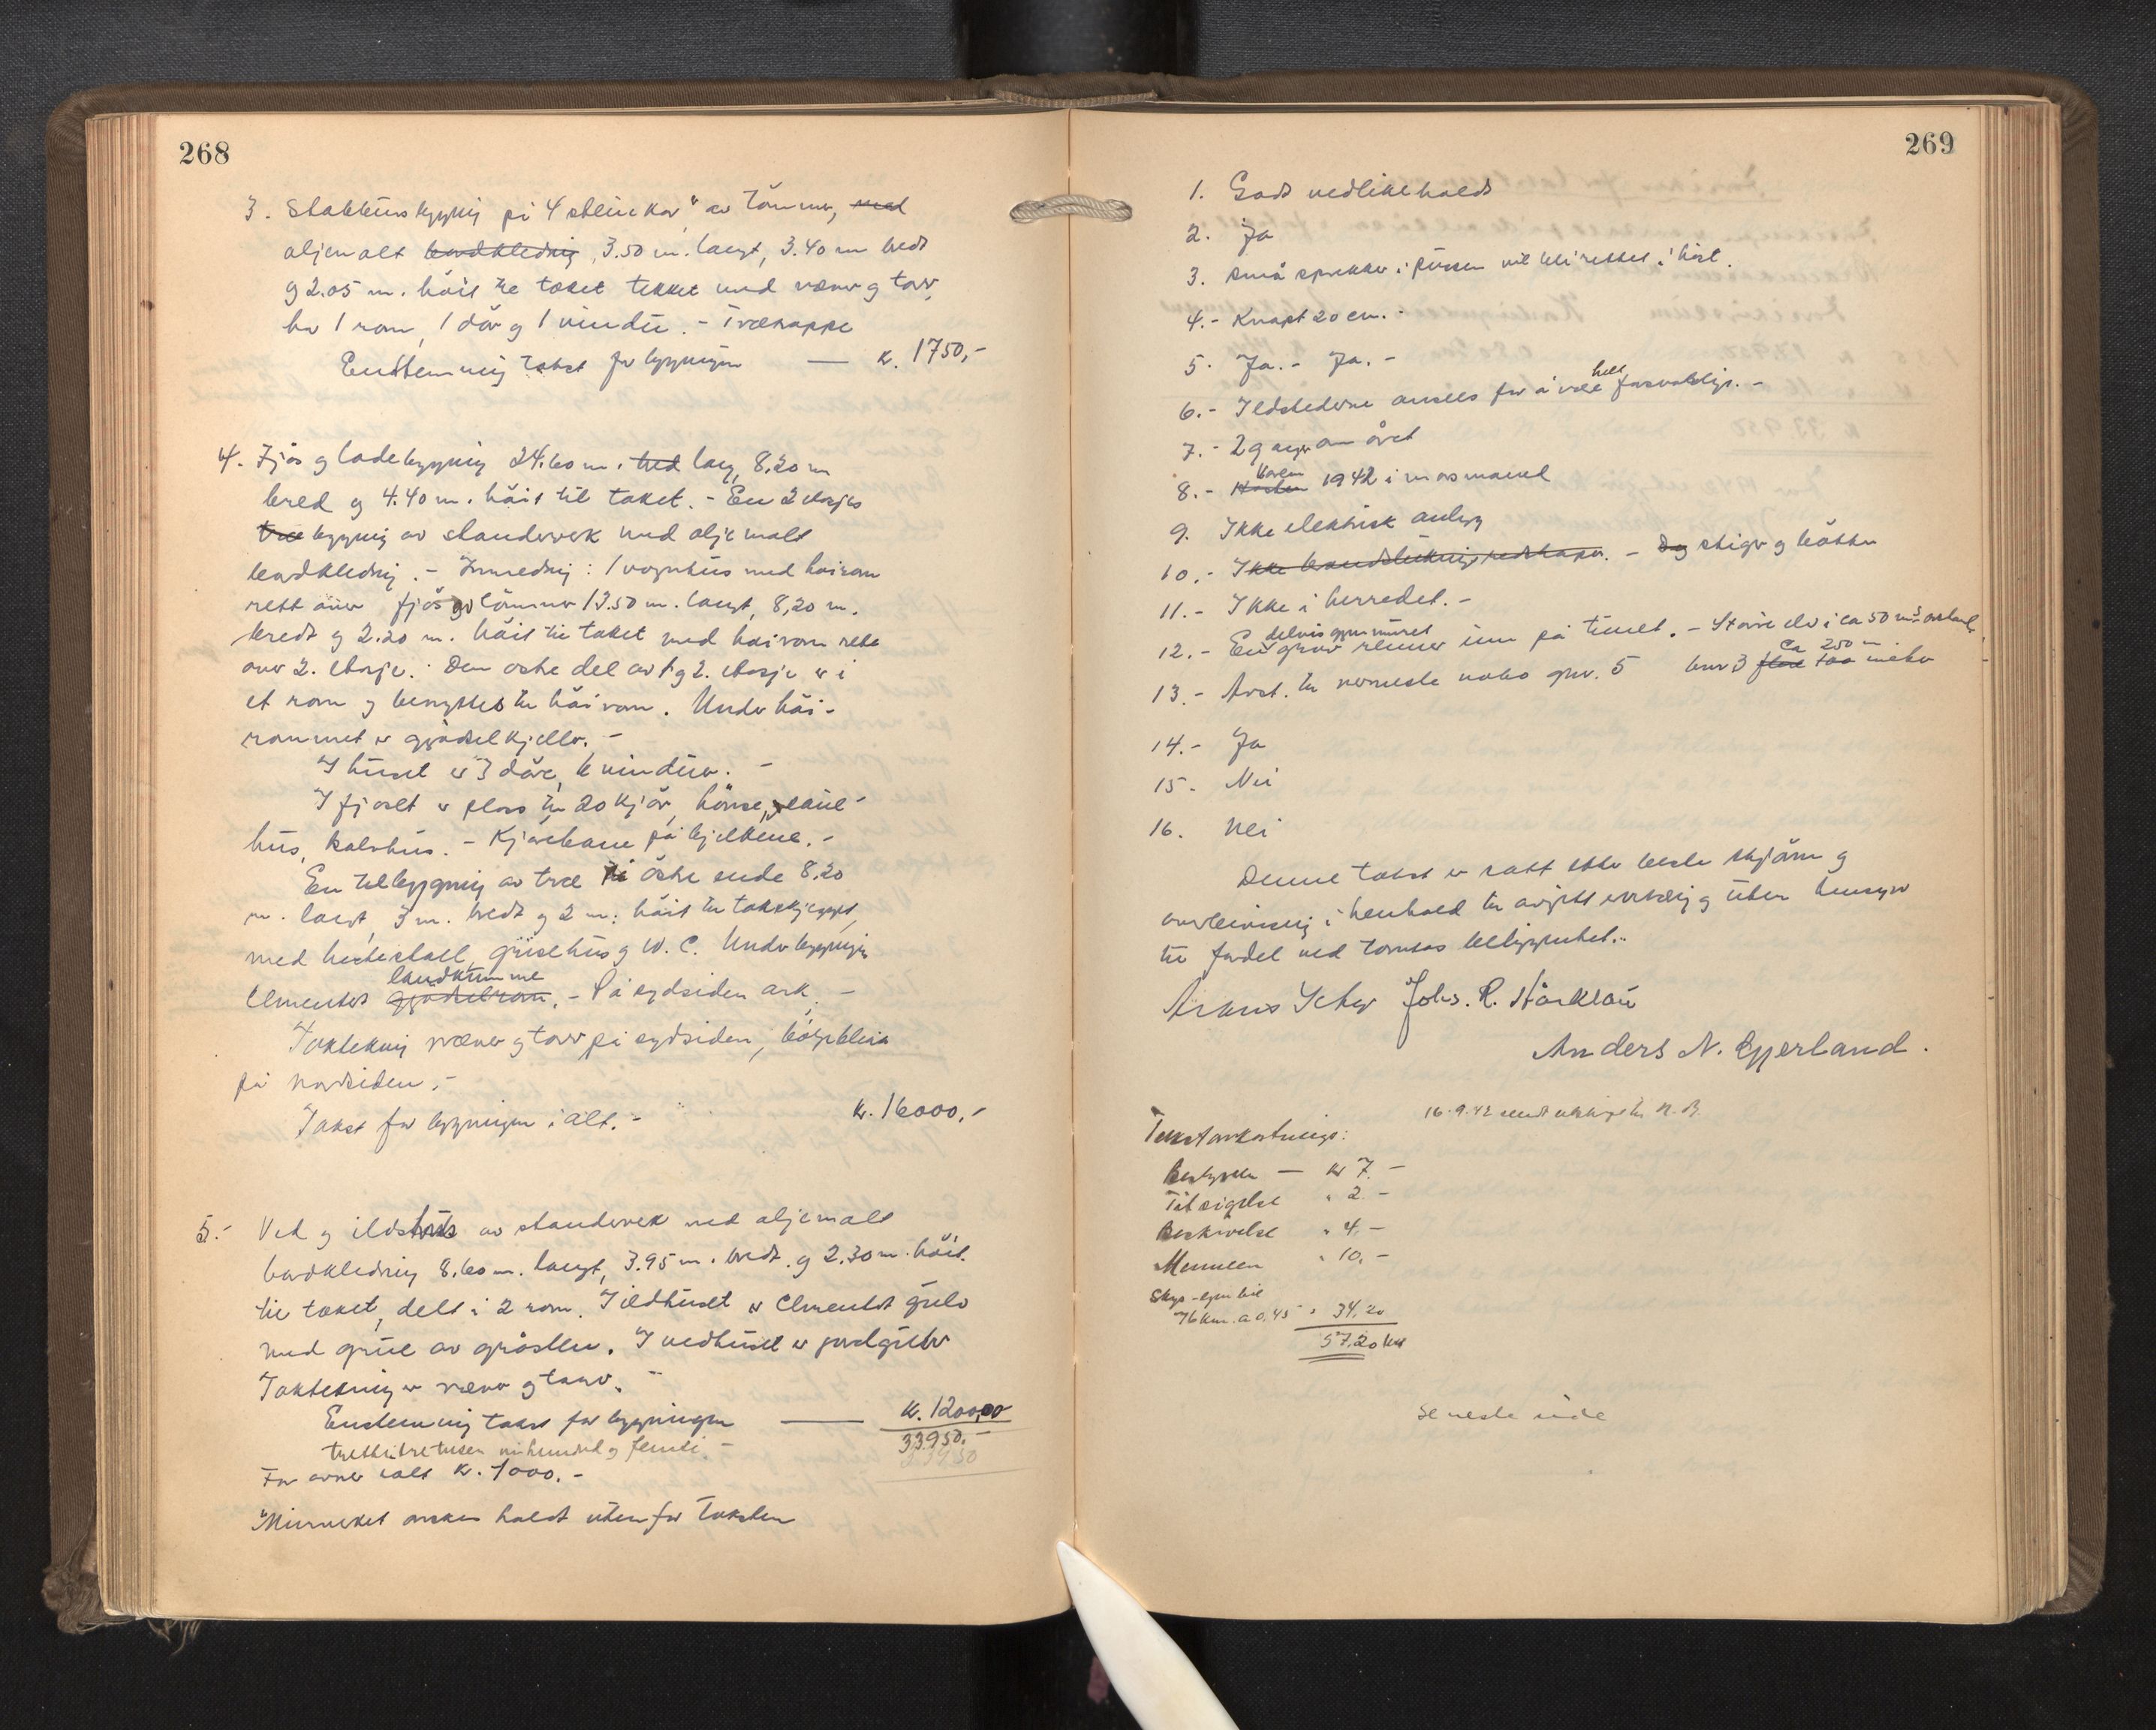 268
3. Stabbursbygnig på 4 "stein kar" av tömmer, med
oljemalt bordklednig, 3.50 m. langt, 3.40 m bredt
og 2.05 m. höit til taket tekket med næver og torv,
har 1 rom, 1 dör og 1 vindu. - Trætrappe
Enstemmig takst for bygnigen — kr. 1750,-
4. Fjös og ladebygnig 24.60 m. bred lang, 8,20 m
bred og 4.40 m. höit til taket. - En 2 etasjes
træbygnig av standerverk med oljemalt
bordklednig. - Innrednig: 1 vognhus med höirom
rett over fjös av tömmer 13.50 m. langt, 8,20 m.
bredt og 2.20 m. höit til taket med höirom rett
over 2. etasje. Den östre del av 1 og 2. etasje er i
et rom og benyttes til höirom. Under höi-
rommet er gjödselkjeller. -
I huset er 3 döre, 6 vinduer. -
I fjoset er plass til 20 kjör, hönse, saue-
hus, kalvhus. - Kjörebane på bjelkene. -
En tilbygnig av træ i östre ende 8.20
m. langt, 3 m. bredt og 2 m. höit til takskjegget,
med hestestall, grisehus og W.C. Under bygnigen
landkumme
Cementert gjödselrom. - På sydsiden ark. -
Takteknig næver og torv på sydsiden, bölgeblikk
på nordsiden. -
Takst for bygnigen i alt. - kr. 16000,-
5.- Ved og ildhus av standerverk med oljemalt
bordklednig 8.60 m. langt, 3.95 m. bredt og 2.30 m. höit
til taket, delt i 2 rom. I ildhuset er Cementert gulv
med grue av gråsten. I vedhuset er jordgulv
Taktenig er næver og torv. -
Enstemmig takst for bygningen — kr. 1200,00
33950.-
trettitretusen nihundred og femti. - 33950
For ovner ialt kr. 1000.-
Murverket önskes holdt utenfor taksten
269
1. Godt vedlikeholdt
2. Ja
3. små sprekker i pussen vil bli rettet i höst.
4.- Knapt 20 cm. -
5. Ja. - Ja. -
helt
6.- Ildstederne ansees for å være forsvarlige. -
7.- 2 ganger om året
Våren
8.- Hösten 1942 i mars maned
9. Ikke elektrisk anlegg
10.- Ikke brandsluknigsredskaper. - Dog stige og bötter
11.- Ikke i herredet. -
delvis gjenmuret
12.- En gruve renner inn på tunet. - Större elv i ca 50 m's avstand.
ca 250 m
13.- Avst. til nermeste nabo gnr. 5 bnr 3 flere 100 meter -
14.- Ja
15. Nei
16. Nei
Denne takst er satt etter beste skjönn og
overbevisnig i henhold til avgitt erklærig og uten hensyn
til fordel ved tomtas beliggenhet. -
Johs. R. Hårklau
Anders N. Gjerland.
16.9.42 sendt utskrift til N.B.
Takstomkostninger:
Bestyrer — kr 7.-
Tilsigelse " 2 -
Beskrivelse " 4,-
Mennene " 10,-
Skys - egen bil
76 km. a 0,45 " 34,20
57,20 kr
Se neste side